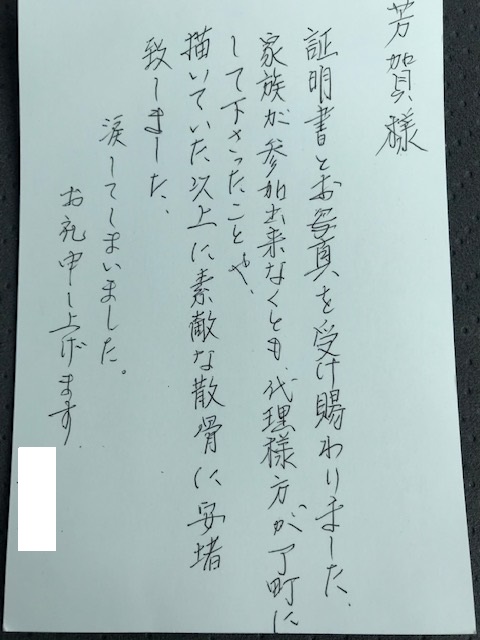 芳賀様
証明書とお写真を受け賜わりました、
家族が参加出来なくとも、代理様方が丁町に
して下さったことや、
描いていた以上に素敵な散骨に安堵
致しました、
涙してしまいました。
お礼申し上げます